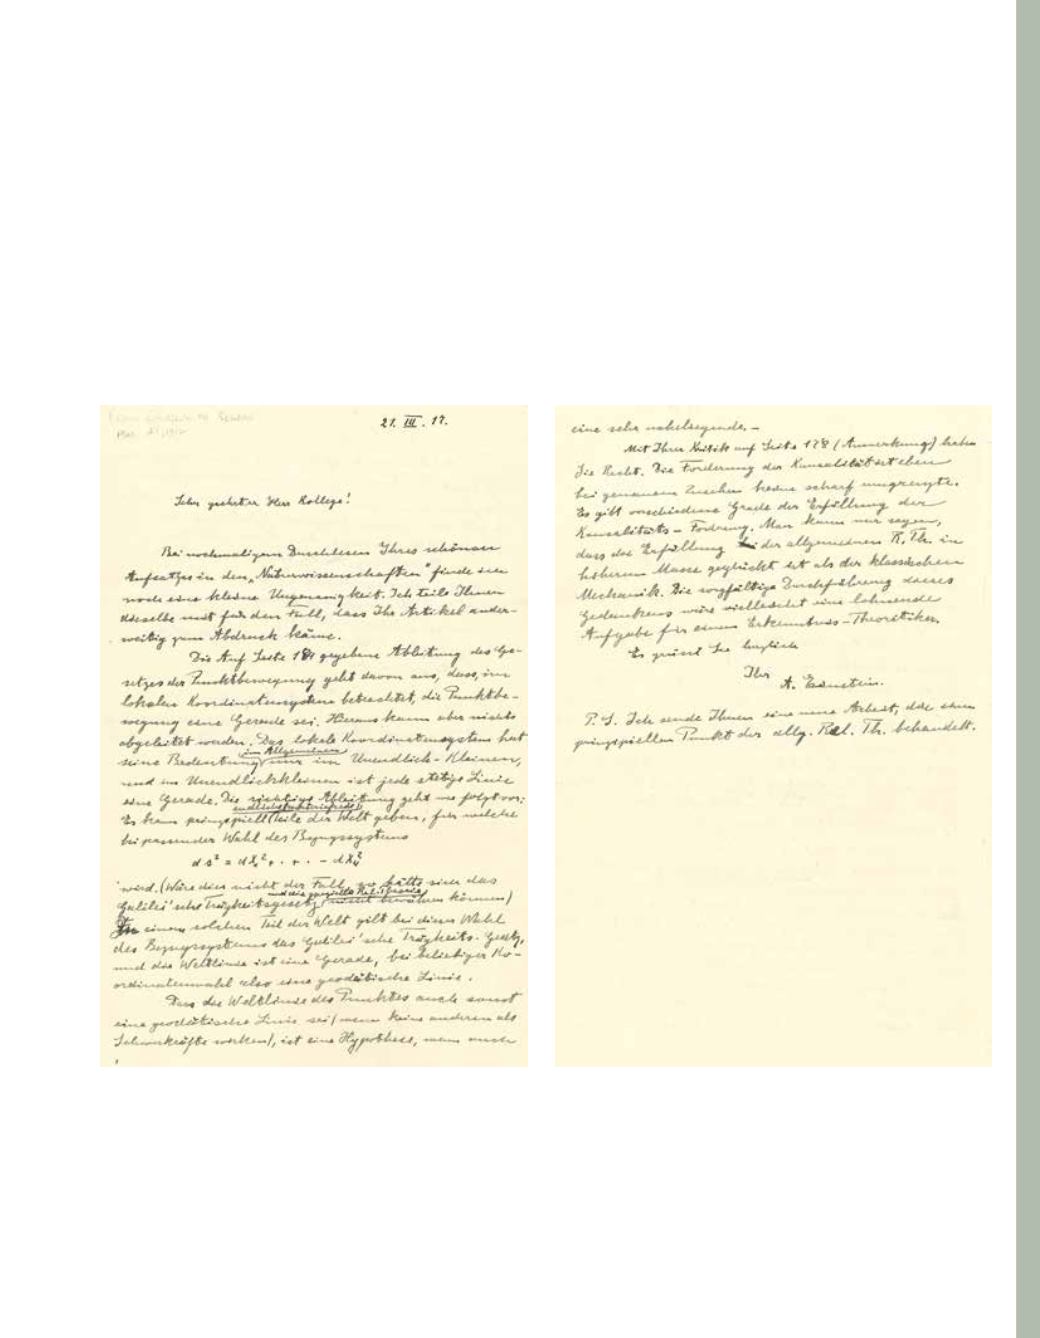 21. III. 17.
Sehr geehrter Herr Kollege!
Bei nochmaligem Durchlesen Ihres schönen
Aufsatzes in den „Naturwissenschaften" finde ich
noch eine kleine Ungenauigkeit. Ich teile Ihnen
dieselbe mit für den Fall, dass Ihr Artikel ander-
weitig zum Abdruck käme.
Die Auf Seite 184 gegebene Ableitung des Ge-
setzes der Punktbewegung geht davon aus, dass, im
lokalen Koordinatensystem betrachtet, die Punktbe-
wegung eine Gerade sei. Hieraus kann aber nichts
abgeleitet werden. Das lokale Koordinatensystem hat
im Allgemeinen
seine Bedeutung nur im Unendlich-Kleinen,
und im Unendlichkleinen ist jede stetige Linie
eine Gerade. Die richtige Ableitung geht wie folgt vor:
Es kann prinzipiell Teile der Welt geben, für welche
bei passender Wahl des Bezugssystems
ds² = dx₁² + . + . - dx₄²
wird. (Wäre dies nicht der Fall, so hätte sich das
und die spezielle Rel.
Galilei'sche Trägheitsgesetz nicht bewähren können)
In einem solchen Teil der Welt gilt bei dieser Wahl
des Bezugssystems das Galilei'sche Trägheits-Gesetz,
und die Weltlinie ist eine Gerade, bei beliebiger Ko-
ordinatenwahl also eine geodätische Linie.
Dass die Weltlinie des Punktes auch sonst
eine geodätische Linie sei (wenn keine anderen als
Schwerkräfte wirken), ist eine Hypothese, wenn auch
eine sehr naheliegende. –
Mit Ihrer Kritik auf Seite 178 (Anmerkung) haben
Sie Recht. Die Forderung der Kausalität ist eben
bei genauem Zusehen keine scharf umgrenzte.
Es gibt verschiedene Grade der Erfüllung der
Kausalitäts-Fordrung. Man kann nur sagen,
dass die Erfüllung bei der allgemeinen R. Th. in
höherem Masse geglückt ist als der klassischen
Mechanik. Die sorgfältige Durchführung dieses
Gedankens wäre vielleicht eine lohnende
Aufgabe für einen Erkenntnis-Theoretiker.
Es grüsst Sie herzlich
Ihr
A. Einstein.
P.S. Ich sende Ihnen eine neue Arbeit, die einen
prinzipiellen Punkt der allg. Rel. Th. behandelt.